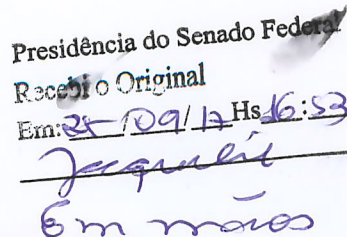 Presidência do Senado Federal
Recebi o Original
Em: 25/09/17 Hs 16:53
Jaqueline
Em mãos